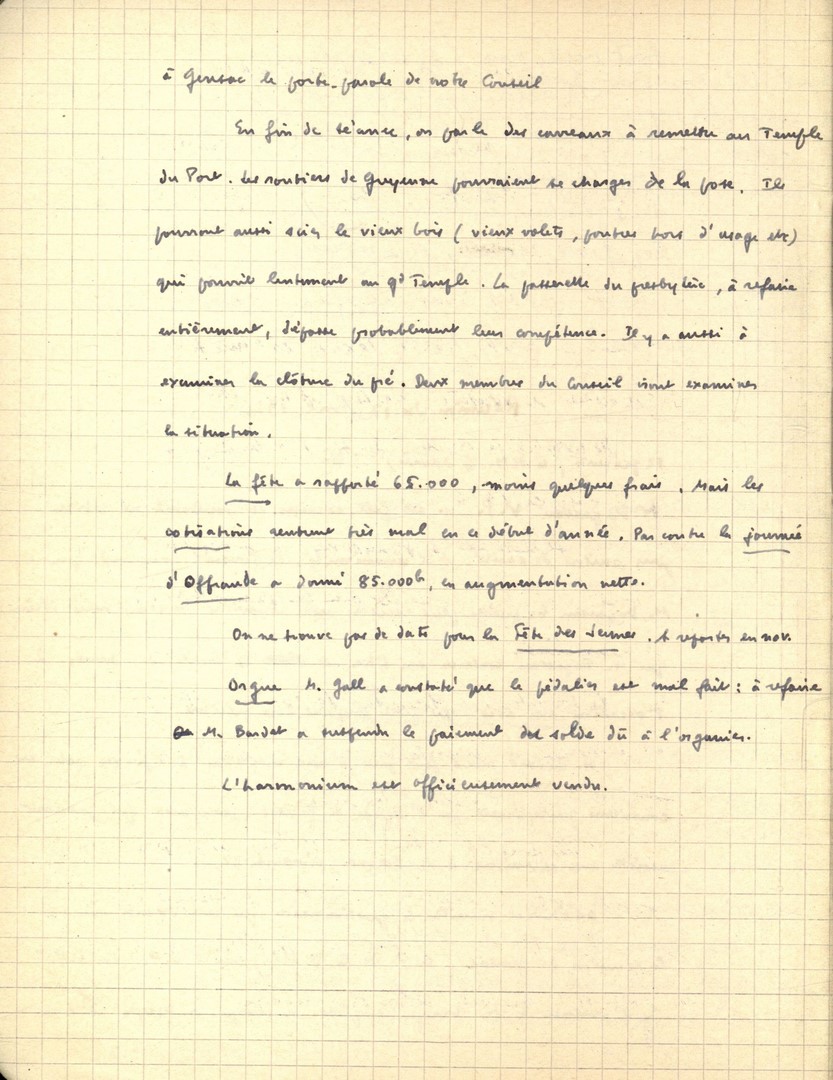 à Gensac le porte-parole de notre Conseil
En fin de séance, on parle des carreaux à remettre au Temple
du Port. Les routiers de Guyenne pourraient se charger de la pose. Ils
pourront aussi scier le vieux bois (vieux volets, poutres hors d'usage etc)
qui pourrit lentement au gd Temple. La passerelle du presbytère, à refaire
entièrement, dépasse probablement leur compétence. Il y a aussi à
examiner la clôture du pré. Deux membres du Conseil iront examiner
la situation.
La fête a rapporté 65.000, moins quelques frais. Mais les
cotisations rentrent très mal en ce début d'année. Par contre la journée
d'Offrande a donné 85.000 fr, en augmentation nette.
On ne trouve pas de date pour la Fête des Jeunes. A reporter en nov.
Orgue M. Gall a constaté que le pédalier est mal fait : à refaire
M. Bardet a suspendu le paiement du solde dû à l'organier.
L'harmonium est officieusement vendu.